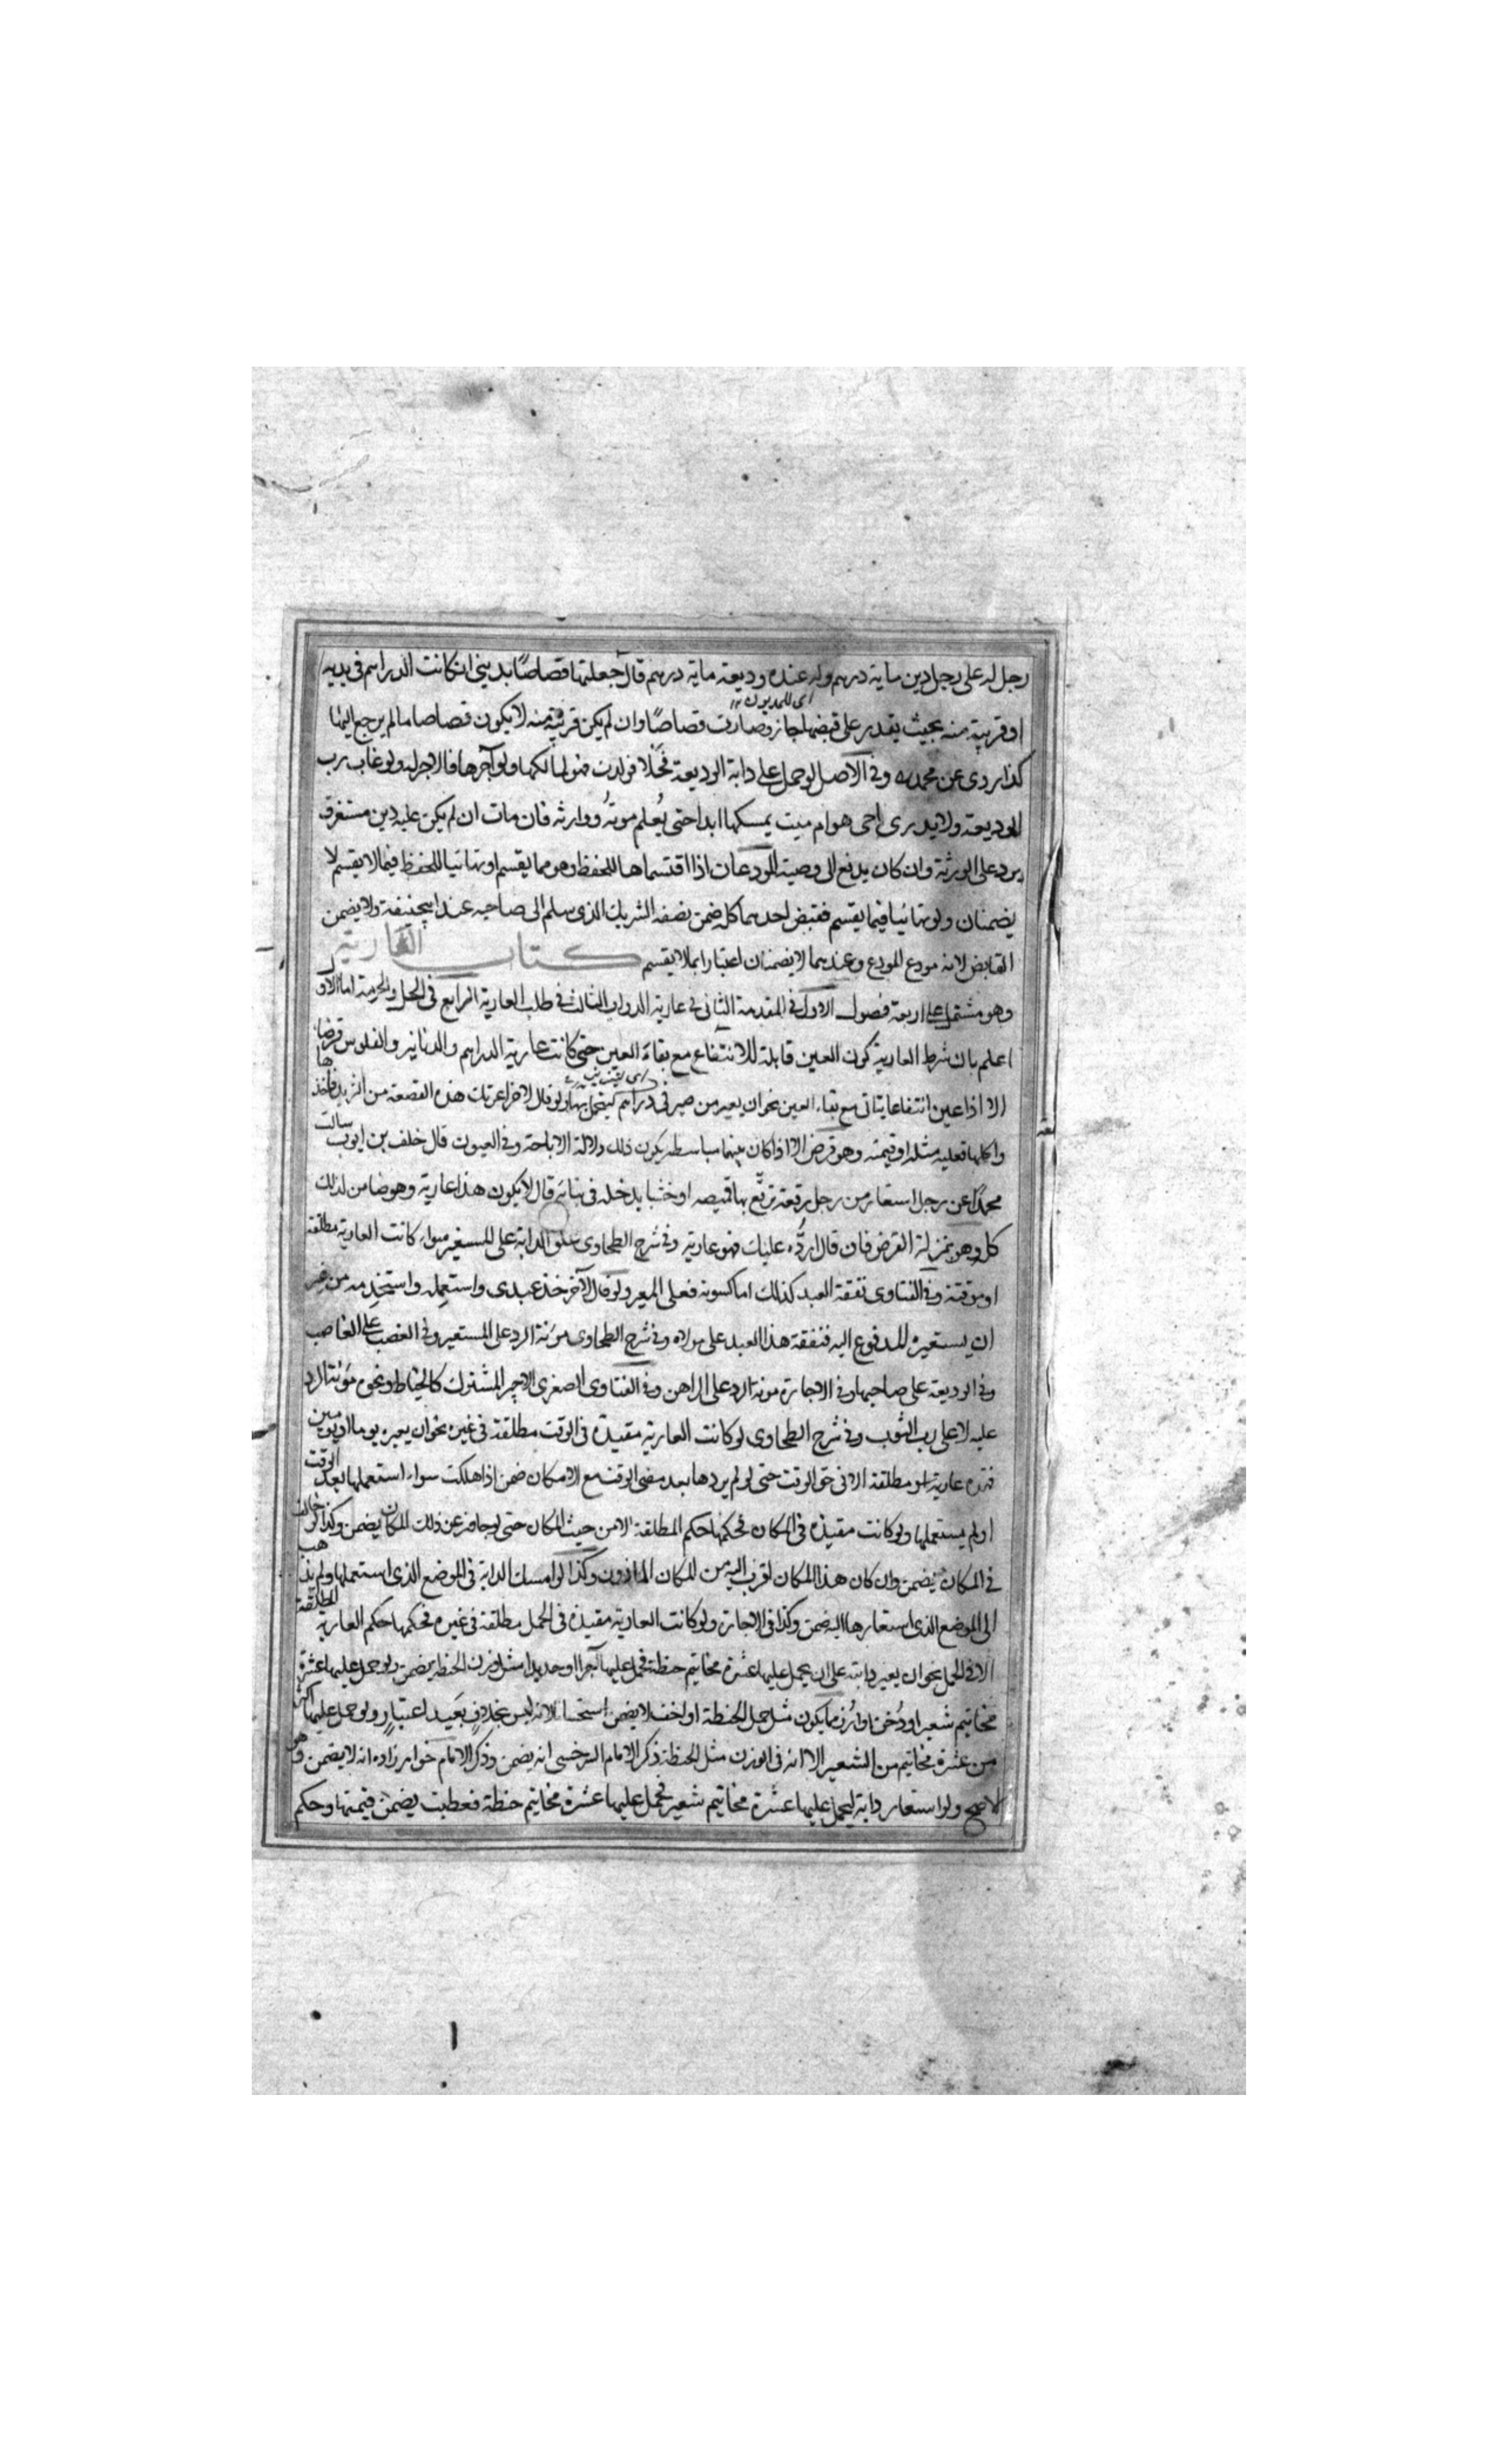 رجل له على رجل دين ماية درهم وله عنده وديعة ماية درهم قال جعلتها قصاصًا بديني ان كانت الدراهم في يديه
اى للمديون ١٢
او قريبة منه بحيث يقدر على قبضها جاز وصارت قصاصًا وان لم يكن قريبة منه لا يكون قصاصا ما لم يرجع اليها
كذا روى عن محمد ره وفى الاصل لو حمل على دابة الوديعة فحلا فولدت فهو لمالكها ولو آجرها فالاجر له ولو غاب رب
الوديعة ولا يدرى احى هو ام ميت يمسكها ابدا حتى يُعلم موتُه ووارثه فان مات ان لم يكن عليه دين مستغرق
يرد على الورثة وان كان يدفع الى وصيه المودعان اذا اقتسماها للحفظ وهو مما يقسم او تهائيا للحفظ فيما لا يقسم لا
يضمنان ولو تهائيا فيما يقسم فقبض احدهما كله ضمن نصفه الشريك الذى سلم الى صاحبه عند ابيحنيفة ولا يضمن
القابض لانه مودع المودع وعندهما لا يضمنان اعتبارا بما لا يقسم كتاب العارية
وهو مشتمل على اربعة فصول الاول فى المقدمة الثانى فى عارية الدواب الثالث فى طلب العارية الرابع فى الحل والحرمة اما الاول
اعلم بان شرط العارية كون العين قابلة للانتفاع مع بقاء العين حتى كانت عارية الدراهم والدنانير والفلوس قرضا
الا اذا عين انتفاعا يتاتى مع بقاء العين نحو ان يعير من صيرفى دراهم ليتجمل بها ولو قال لاخر اعرتك هذه القصعة من الثريد فاخذها
واكلها فعليه مثله او قيمته وهو قرض الا اذا كان بينهما مباسطة يكون ذلك دلالة الاباحة وفى العيون قال خلف بن ايوب سالت
محمدًا عن رجل استعار من رجل رقعة ترقّع بها قميصه او خشبا يدخله فى بنائه قال لا يكون هذا عارية وهو ضامن لذلك
كله وهو بمنزلة القرض فان قال اردُّه عليك فهو عارية وفى شرح الطحاوى علف الدابة على المستعير سواء كانت العارية مطلقة
او موقتة وفى الفتاوى نفقة العبد كذلك اما كسوته فعلى المعير ولو قال لآخر خذ عبدى واستعمِله واستخدِمه من غير
ان يستعيره المدفوع اليه فنفقة هذا العبد على مولاه وفى شرح الطحاوى مؤنة الرد على المستعير وفى الغصب على الغاصب
وفى الوديعة على صاحبها وفى الاجارة مونة الرد على الراهن وفى الفتاوى الصغرى الاجير المشترك كالخياط ونحوه مؤنة الرد
عليه لا على رب الثوب وفى شرح الطحاوى لو كانت العارية مقيدة فى الوقت مطلقة فى غيره نحو ان يعيره يوما او يومين
فهذه عارية مطلقة الا فى حق الوقت حتى لو لم يردها بعد مضى الوقت مع الامكان ضمن اذا هلكت سواء استعملها بعد الوقت
او لم يستعملها ولو كانت مقيدة فى المكان فحكمها حكم المطلقة الا من حيث المكان حتى لو جاوز عن ذلك المكان يضمن وكذا لو خالف
فى المكان يضمن وان كان هذا المكان اقرب اليه من المكان الماذون وكذا لو امسك الدابة فى الموضع الذى استعملها ولم يذهب
الى الموضع الذى استعارها اليه ضمن وكذا فى الاجارة ولو كانت العارية مقيدة فى الحمل مطلقة فى غيره فحكمها حكم العارية المطلقة
الا فى الحمل نحو ان يعير دابته على ان يحمل عليها عشرة مخاتيم حنطة فحمل عليها آجرا او حديدا مثل وزن الحنطة يضمن ولو حمل عليها عشرة
مخاتيم شعيرا او دُخن او ارُز مما يكون مثل حمل الحنطة او اخف لا يضمن استحسانا لانه ليس بخلاف بقيد اعتبار ولو حمل عليها اكثر
من عشرة مخاتيم من الشعير الا انه فى الوزن مثل الحنطة ذكر الامام السرخسى انه يضمن وذكر الامام خواهرزاده انه لا يضمن وهو
الاصح ولو استعار دابة ليحمل عليها عشرة مخاتيم شعير فحمل عليها عشرة مخاتيم حنطة فعطبت يضمن قيمتها وحكم